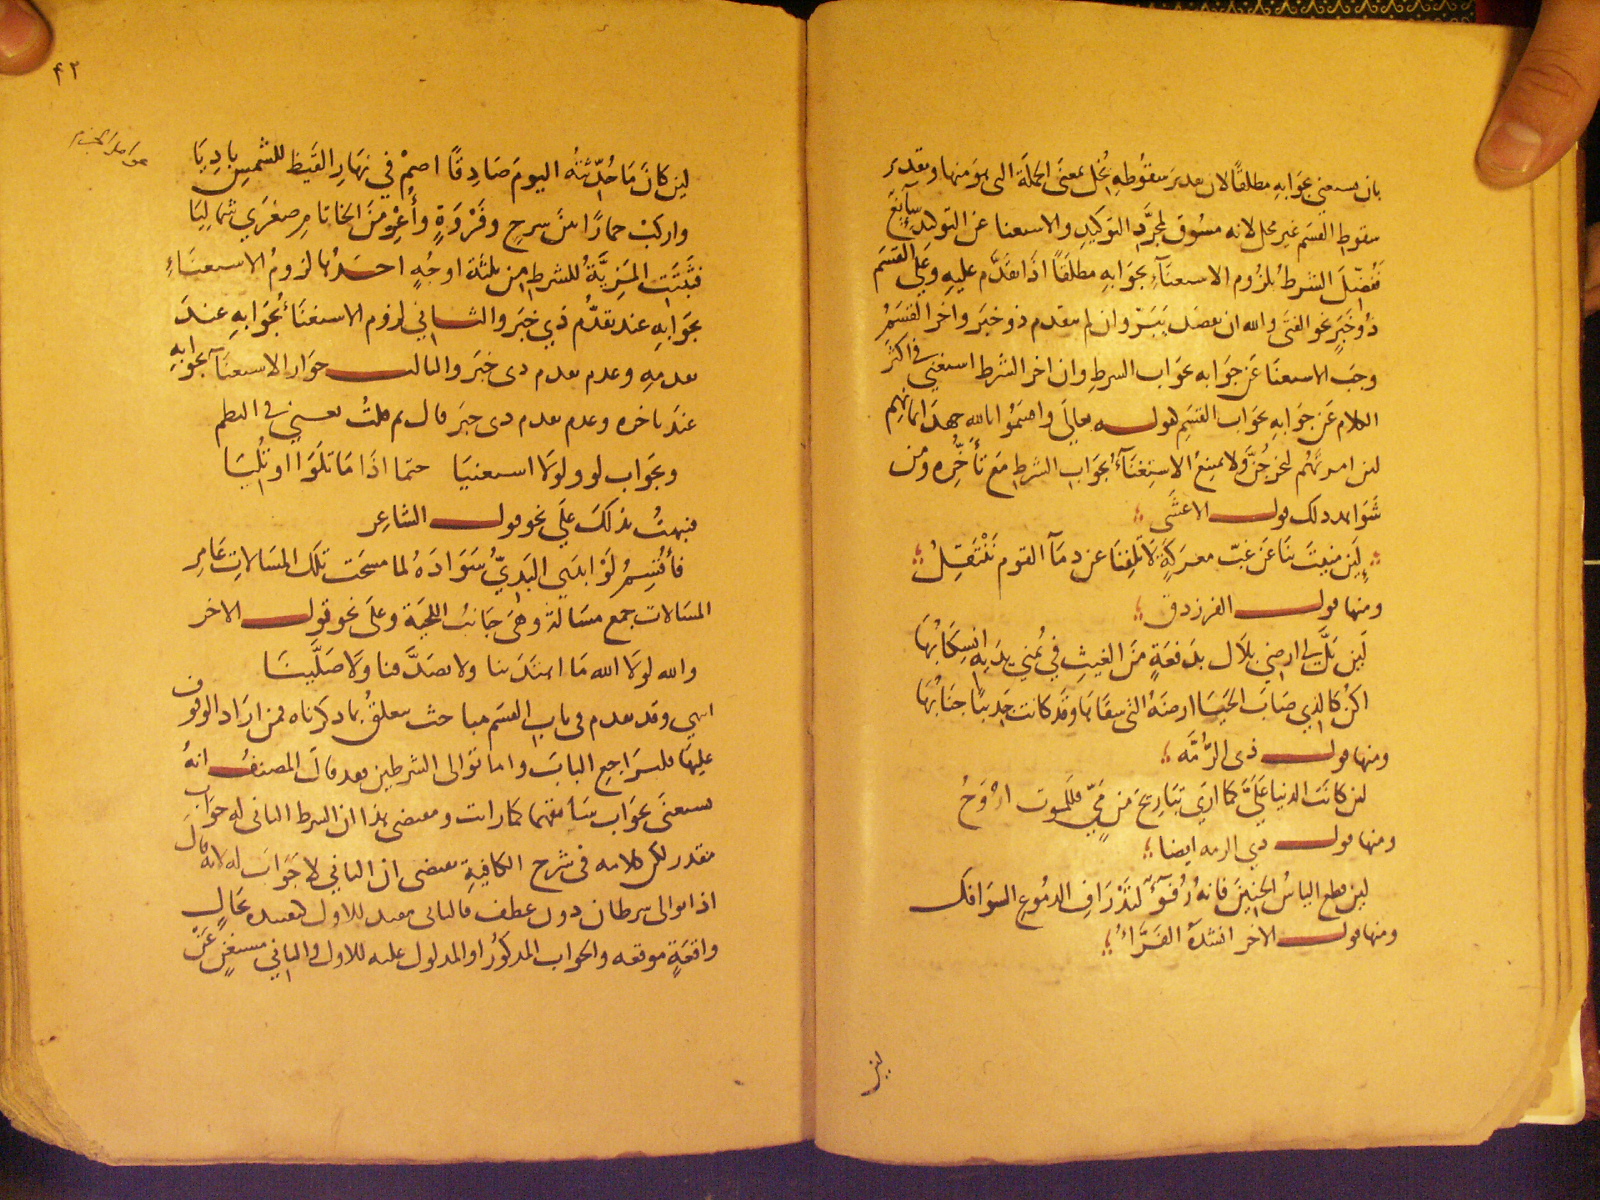 بان يستغني بجوابه مطلقا لان تقدير سقوطه مخل بمعنى الجملة التي هو منها وتقدير
سقوط القسم غير مخل لانه مسوق لمجرد التوكيد والاستغنا عن التوكيد سائغ
ففضل الشرط بلزوم الاستغناء بجوابه مطلقا اذا تقدم عليه وعلى القسم
ذو خبر نحو الفتى والله ان يقصد يبر وان لم يتقدم ذو خبر واخر القسم
وجب الاستغنا عن جوابه بجواب الشرط وان اخر الشرط استغني في اكثر
الكلام عن جوابه بجواب القسم كقوله تعالى واقسموا بالله جهد ايمانهم
لئن امرتهم ليخرجن ولا يمنع الاستغناء بجواب الشرط مع تأخره ومن
شواهد ذلك قول الاعشى
لئن منيت بنا عن غب معركة لا تلفنا عن دمآ القوم ننتفل
ومنها قول الفرزدق
لئن بل لي ارضي بلال بدفعة من الغيث في يمنى يديه انسكابها
اكن كالذي صاب الحيا ارضه التي سقاها وقد كانت جديبا جنابها
ومنها قول ذى الرمه
لئن كانت الدنيا علي كما ارى تباريح من مي فللموت اروح
ومنها قول ذي الرمه ايضا
لئن قطع الياس الحنين فانه رقوء لتذراف الدموع السوافك
ومنها قول الاخر انشده الفراء
لئن
۴۲
لئن كان ما حدثته اليوم صادقا اصم في نهار القيظ للشمس باديا
واركب حمارا بين سرج وفروة وأعر من الخاتام صغرى شماليا
فثبتت المزية للشرط من ثلثة اوجه احدها لزوم الاستغناء
بجوابه عند تقدم ذي خبر والثاني لزوم الاستغناء بجوابه عند
تقدمه وعدم تقدم ذى خبر والثالث جواز الاستغناء بجوابه
عند تاخره وعدم تقدم ذى خبر قال ثم قلت يعني في النظم
وبجواب لو ولولا استغنيا حتما اذا ما تلوا او تليا
فنبهت بذلك على نحو قول الشاعر
فأقسم لو ابدى الندي سواده لما مسحت تلك المسالات عامر
المسالات جمع مسالة وهي جانب اللحية وعلى نحو قول الاخر
والله لولا الله ما اهتدينا ولا تصدقنا ولا صلينا
انتهى وقد تقدم في باب القسم مباحث تتعلق بما ذكرناه فمن اراد الوقوف
عليها فليراجع الباب واما توالى الشرطين فقد قال المصنف انه
يستغنى بجواب سابقهما كما رايت ومقتضى هذا ان الشرط الثانى له جواب
مقدر لكن كلامه فى شرح الكافية يقتضى ان الثاني لا جواب له لانه قال
اذا توالى شرطان دون عطف فالثانى مقيد للاول كتقييده بحال
واقعة موقعه والجواب المذكور او المدلول عليه للاول والثاني مستغن عن